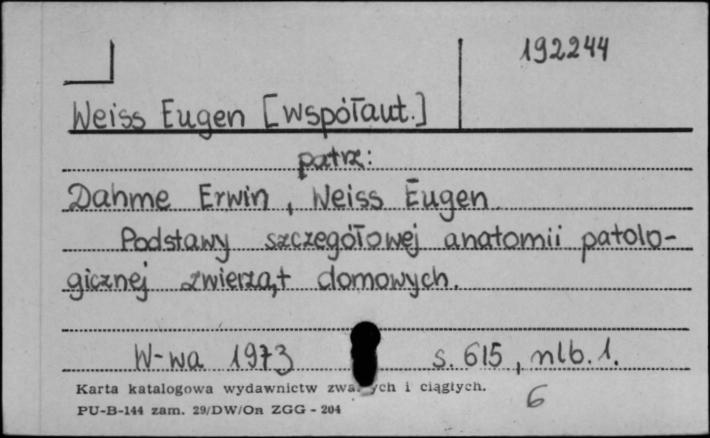 192244
Weiss Eugen [współaut.]
patrz:
Dahme Erwin, Weiss Eugen
Podstawy szczegółowej anatomii patolo-
gicznej zwierząt domowych.
W-wa 1973 s. 615, nlb. 1.
Karta katalogowa wydawnictw i ciągłych.
PU-B-144 zam. 29/DW/On ZGG - 204
6